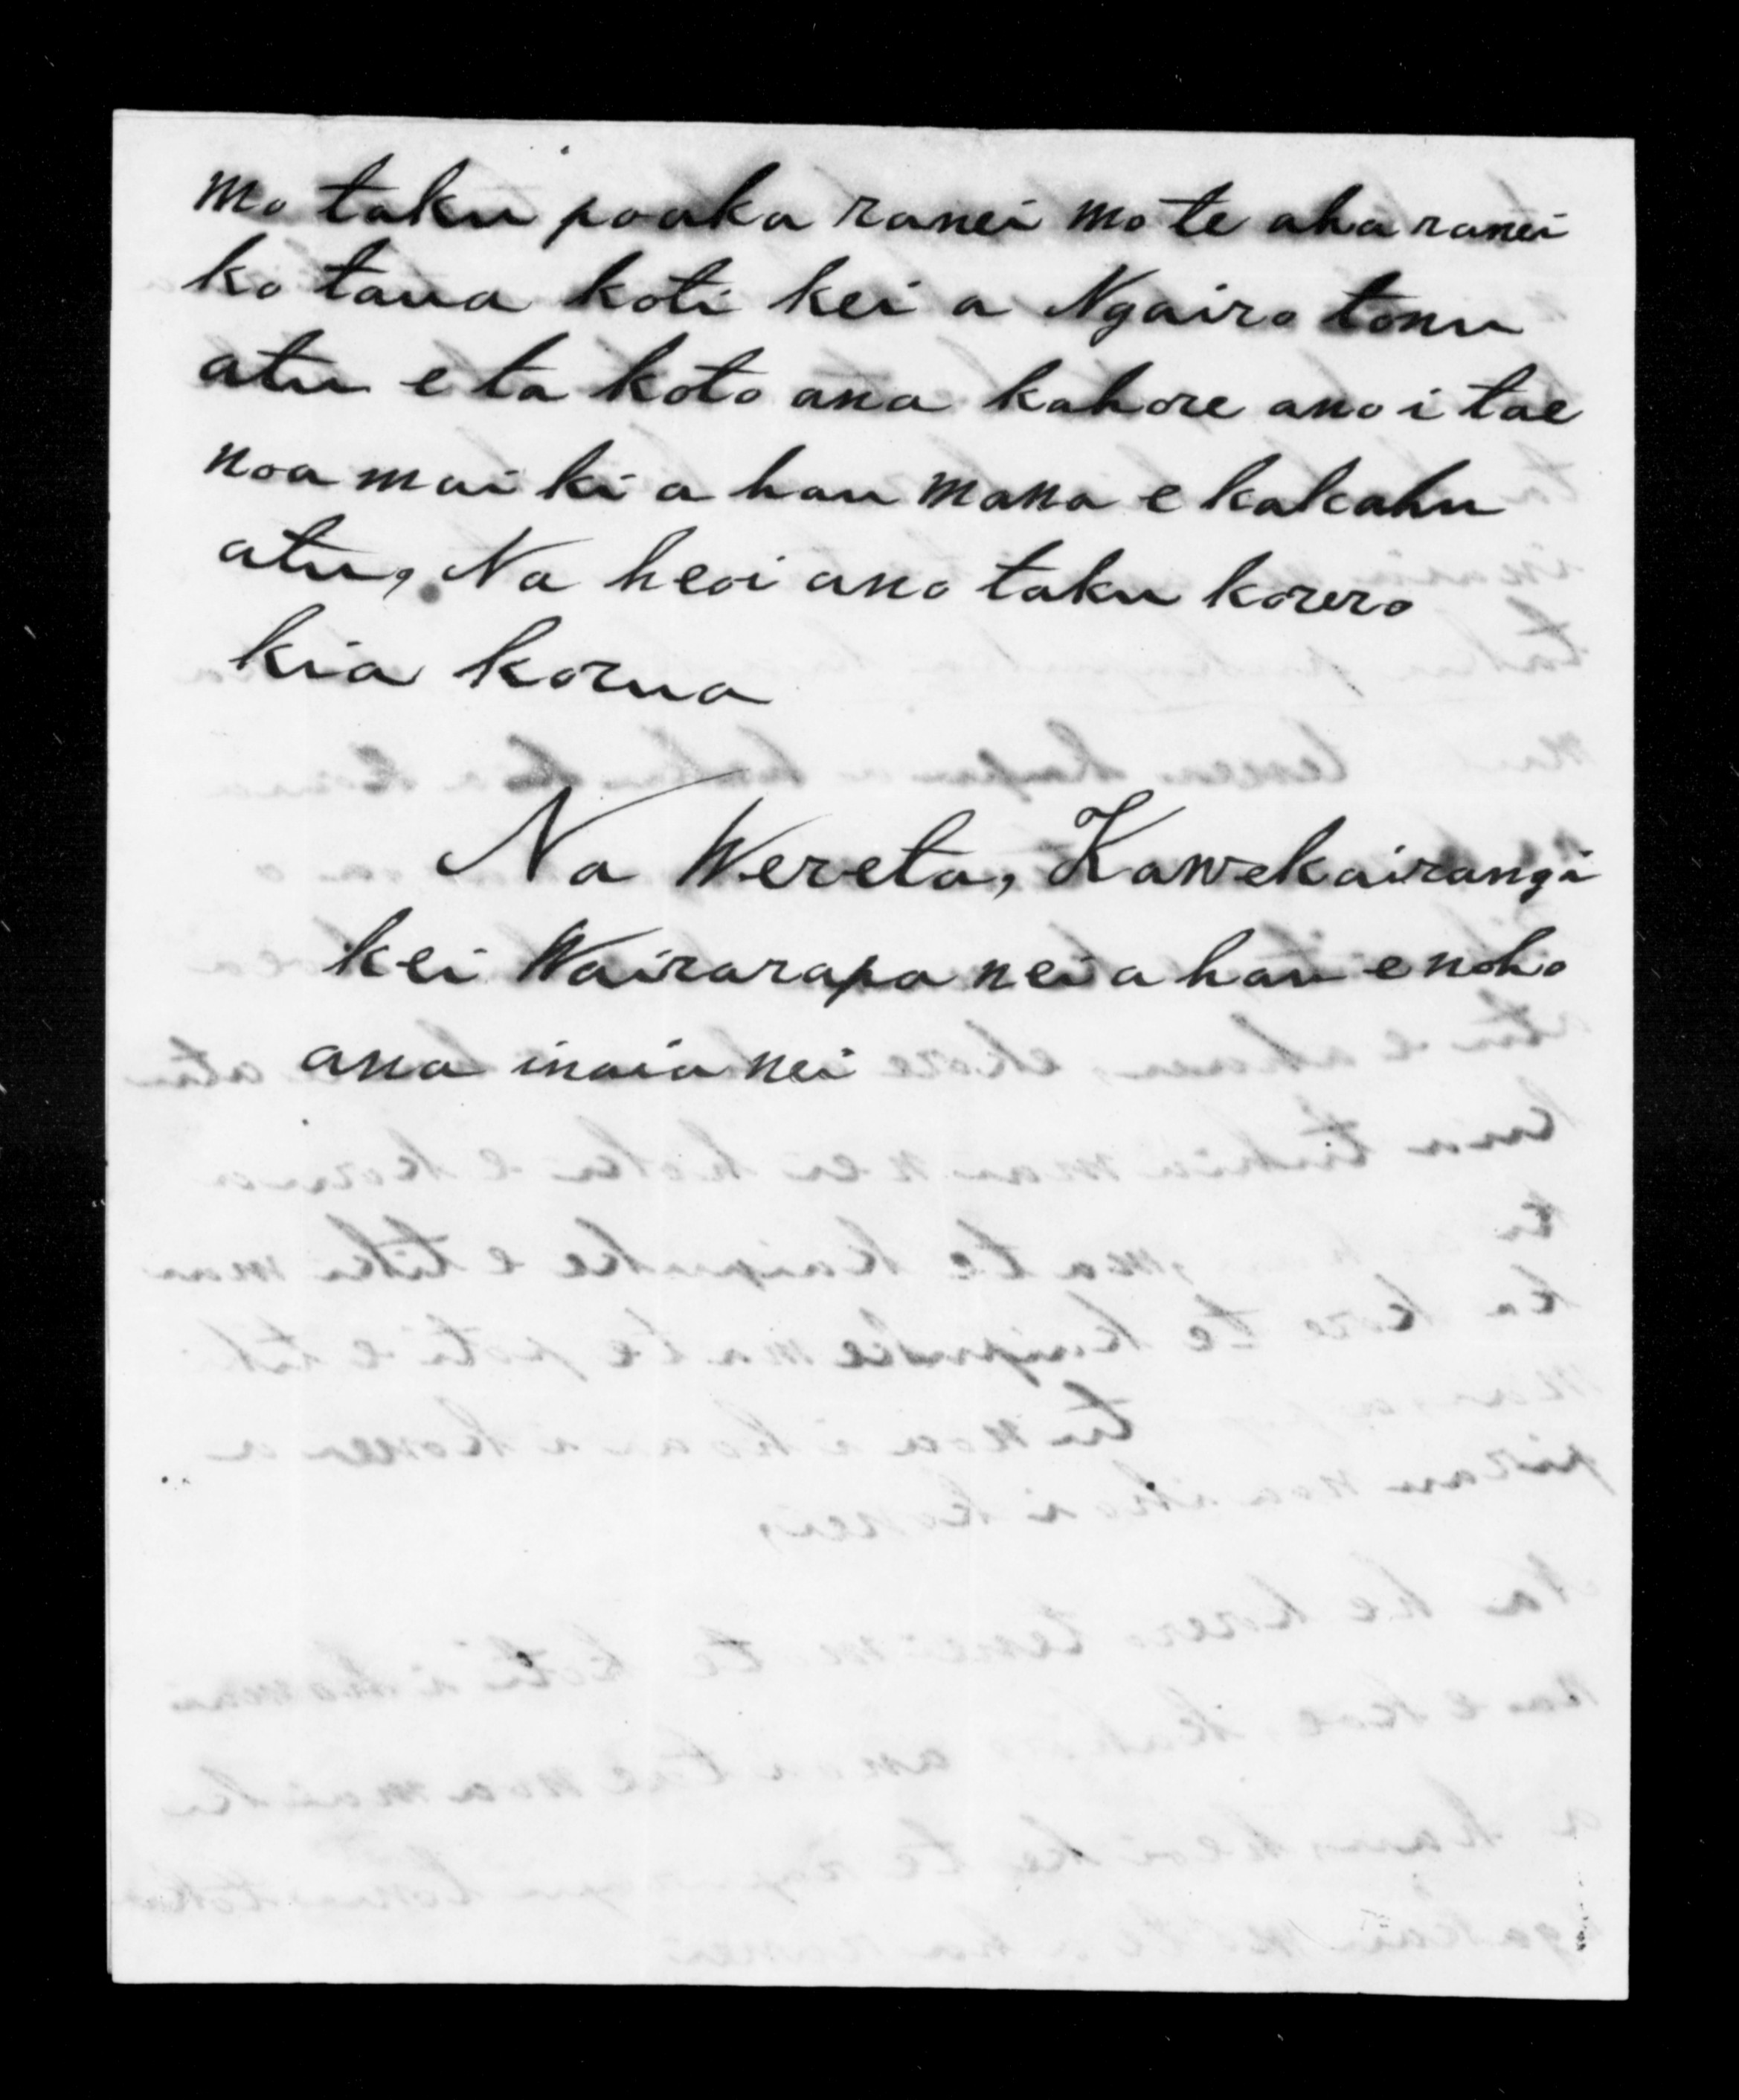 mo taku poaka ranei mo te aha ranei
ko taua koti kei a Ngairo tonu
atu e ta koto ana kahore ano i tae
noa mai ki a hau mana e kakahu
atu, Na heoi ano taku korero
kia korua
Na Wereta, Kawekairangi
kei Wairarapa nei a hau e noho
ana inaia nei